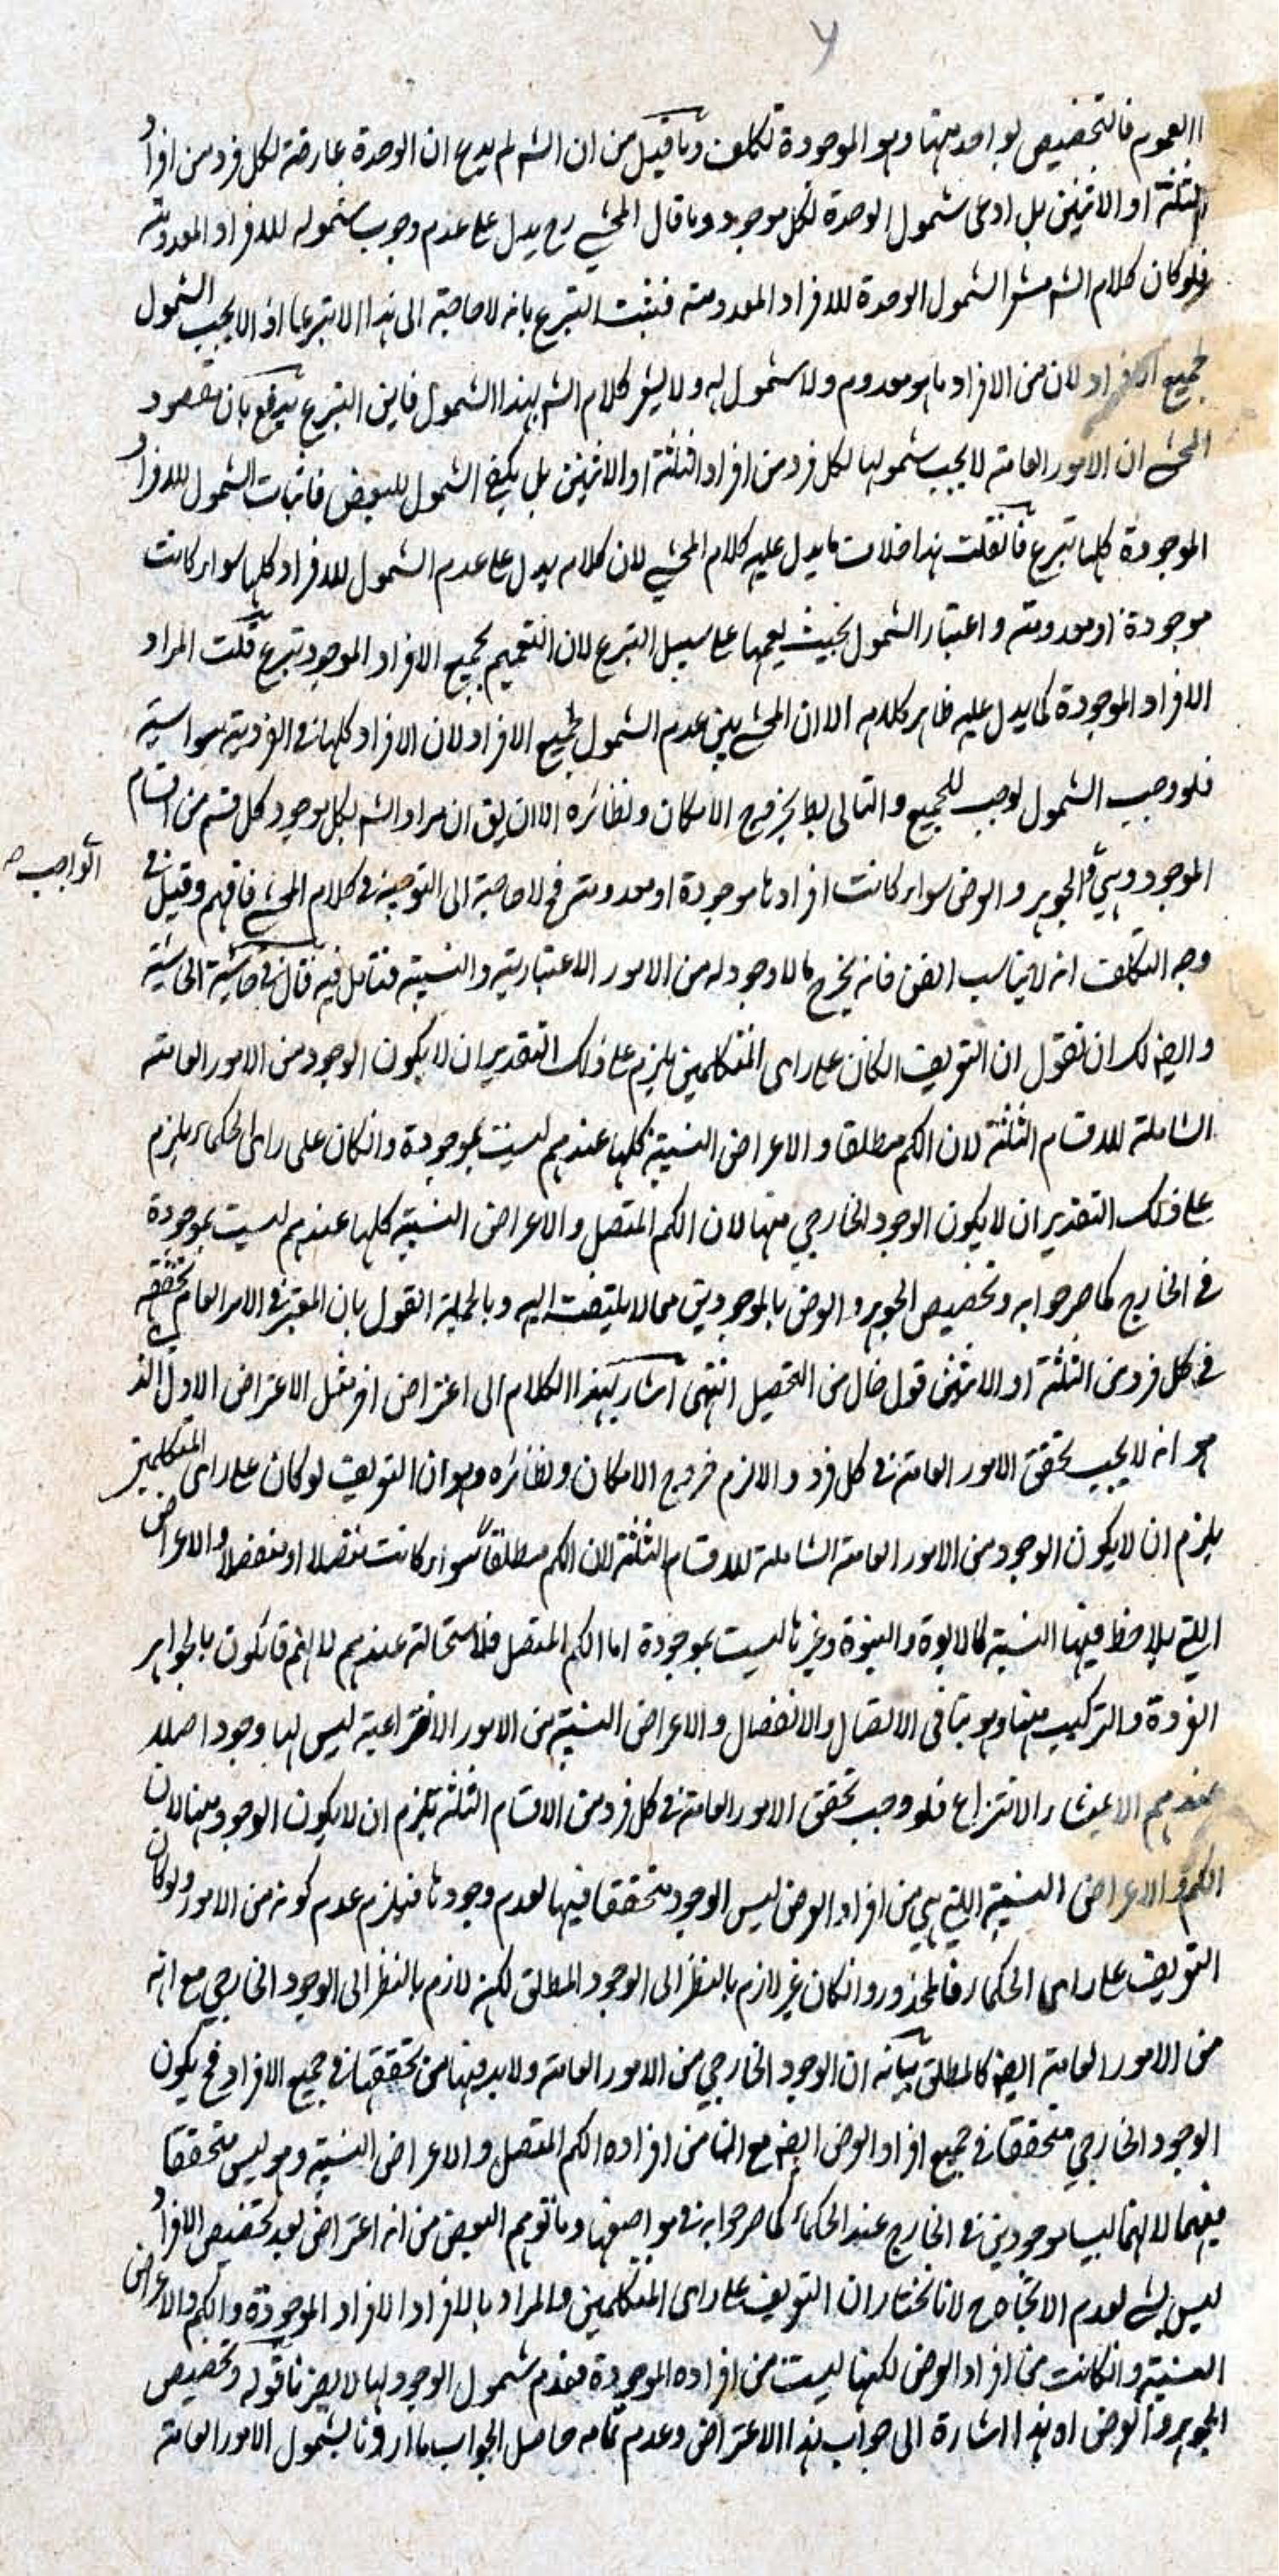 العموم فالتخصيص بواحد منهما وهو الموجودة تكلف وما قيل من ان الشه لم يدع ان الوحدة عارضة لكل فرد من افراد
الثلثة او الاثنين بل ادعى شمول الوحدة لكل موجود وما قال المحشي رح يدل على عدم وجوب شموله للافراد المعدومة
فلو كان كلام الشه مشعرا لشمول الوحدة للافراد المعدومة فيثبت التبرع بانه لا حاجة الى هذا الا تبرعا اذ لا يجب الشمول
لجميع الافراد لان من الافراد ما هو معدوم ولا شمول له ولا يشعر كلام الشه بهذا الشمول فاين التبرع يدفع بان مقصود
المحشي ان الامور العامة لا يجب شمولها لكل فرد من افراد الثلثة او الاثنين بل يكفي الشمول للبعض فاثبات الشمول للافراد
الموجودة كلها تبرع فانقلت هذا خلاف ما يدل عليه كلام المحشي لان كلامه يدل على عدم الشمول للافراد كلها سواء كانت
موجودة او معدومة و اعتبار الشمول بحيث يعمها على سبيل التبرع لان التعميم لجميع الافراد الموجود تبرع قلت المراد
الافراد الموجودة كما يدل عليه ظاهر كلامه الا ان المحشي بين عدم الشمول لجميع الافراد لان الافراد كلها في الفردية سواسية
فلو وجب الشمول لوجب للجميع و التالي بط بخروج الامكان ونظائره الا ان يق ان مراد الشه بكل موجود كل قسم من اقسام
الموجود وهي و الجوهر و العرض سواء كانت افرادها موجودة او معدومة فح لا حاجة الى التوجيه في كلام المحشي فافهم وقيل في
الواجب صه
وجه التكلف انه لا يناسب الفن فانه يخرج ما لا وجود له من الامور الاعتبارية و النسبية فتامل فيه قال في حاشية الحاشية
و ايضه لك ان تقول ان التعريف الكان على راى المتكلمين يلزم على ذلك التقدير ان لا يكون الوجود من الامور العامة
الشاملة للاقسام الثلثة لان الكم مطلقا و الاعراض النسبية كلها عندهم ليست بموجودة و انكان على راى الحكماء يلزم
على ذلك التقدير ان لا يكون الوجود الخارجي منها لان الكم المتصل و الاعراض النسبية كلها عندهم ليست بموجودة
في الخارج كما صرحوا به وتخصيص الجوهر و العرض بالموجودين مما لا يلتفت اليه وبالجملة القول بان المعتبر في الامر العام تحققه
في كل فرد من الثلثة او الاثنين قول خال من التحصيل انتهى اشار بهذا الكلام الى اعتراض اخر مثل الاعتراض الاول الذي
هو انه لا يجب تحقق الامور العامة في كل فرد و الا لزم خروج الامكان ونظائره وهو ان التعريف لو كان على راى المتكلمين
يلزم ان لا يكون الوجود من الامور العامة الشاملة للاقسام الثلثة لان الكم مطلقا سواء كانت متصلا او منفصلا و الاعراض
اللتي يلاحظ فيها النسبة كالابوة و البنوة وغيرها ليست بموجودة اما الكم المتصل فلاستحالته عندهم لانهم قائلون بالجواهر
الفردة و التركيب منها وهو ينافي الاتصال و الانفصال و الاعراض النسبية من الامور الانتزاعية ليس لها وجود اصلا
عندهم الا لمنشاء الانتزاع فلو وجب تحقق الامور العامة في كل فرد من الاقسام الثلثة يلزم ان لا يكون الوجود منها لان
الكم و الاعراض النسبية اللتي هي من افراد العرض ليس الوجود متحققا فيها لعدم وجودها فيلزم عدم كونه من الامور ولو كان
التعريف على راى الحكماء فالمحذور و انكان غير لازم بالنظر الى الوجود المطلق لكنه لازم بالنظر الى الوجود الخارجي مع انه
من الامور العامة ايضه كالمطلق بيانه ان الوجود الخارجي من الامور العامة ولا بد فيها من تحققها في جميع الافراد فح يكون
الوجود الخارجي متحققا في جميع افراد العرض ايضه مع ان من افراده الكم المتصل و الاعراض النسبية وهو ليس متحققا
فيهما لانهما ليسا بموجودين في الخارج عند الحكماء كما صرحوا به في مواضعها وما توهم البعض من انه اعتراض بعد تخصيص الافراد
ليس بشي لعدم الاتجاه ح لانا نختار ان التعريف على راى المتكلمين و المراد بالافراد الافراد الموجودة و الكم و الاعراض
النسبية و انكانت من افراد العرض لكنها ليست من افراده الموجودة فعدم شمول الوجود لها لا يضرنا قوله وتخصيص
الجوهر و العرض اه هذا اشارة الى جواب هذا الاعتراض وعدم تمامه حاصل الجواب ما اردنا بشمول الامور العامة